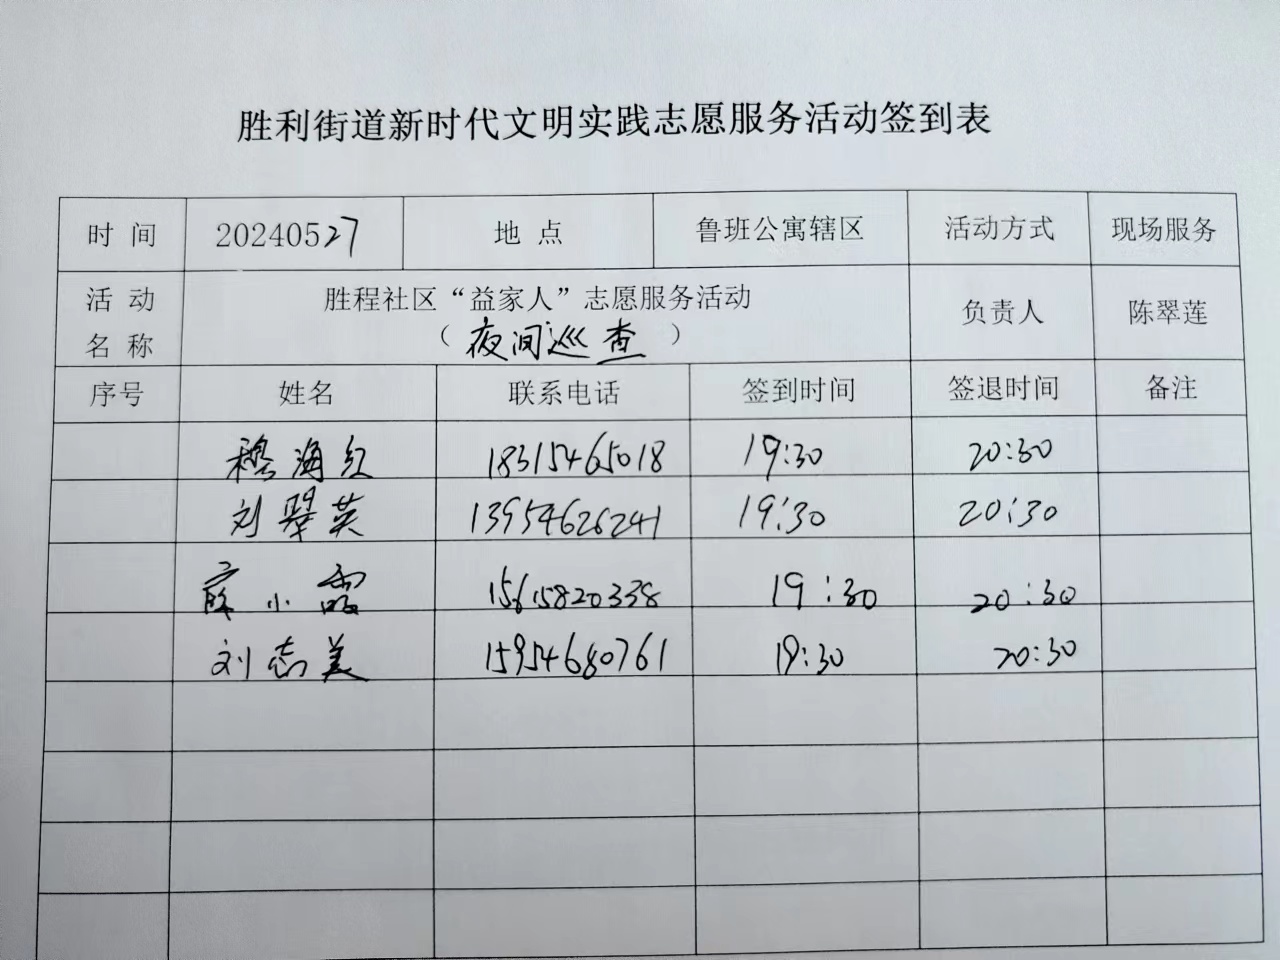 胜利街道新时代文明实践志愿服务活动签到表
时 间 20240527 地 点 鲁班公寓辖区 活动方式 现场服务
活 动 名 称 胜程社区“益家人”志愿服务活动 负责人 陈翠莲
（夜间巡查）
序号 姓名 联系电话 签到时间 签退时间 备注
穆海红 18315465018 19:30 20:30
刘翠英 13954626241 19:30 20:30
薛小霞 15615820338 19:30 20:30
刘志美 15954680761 19:30 20:30